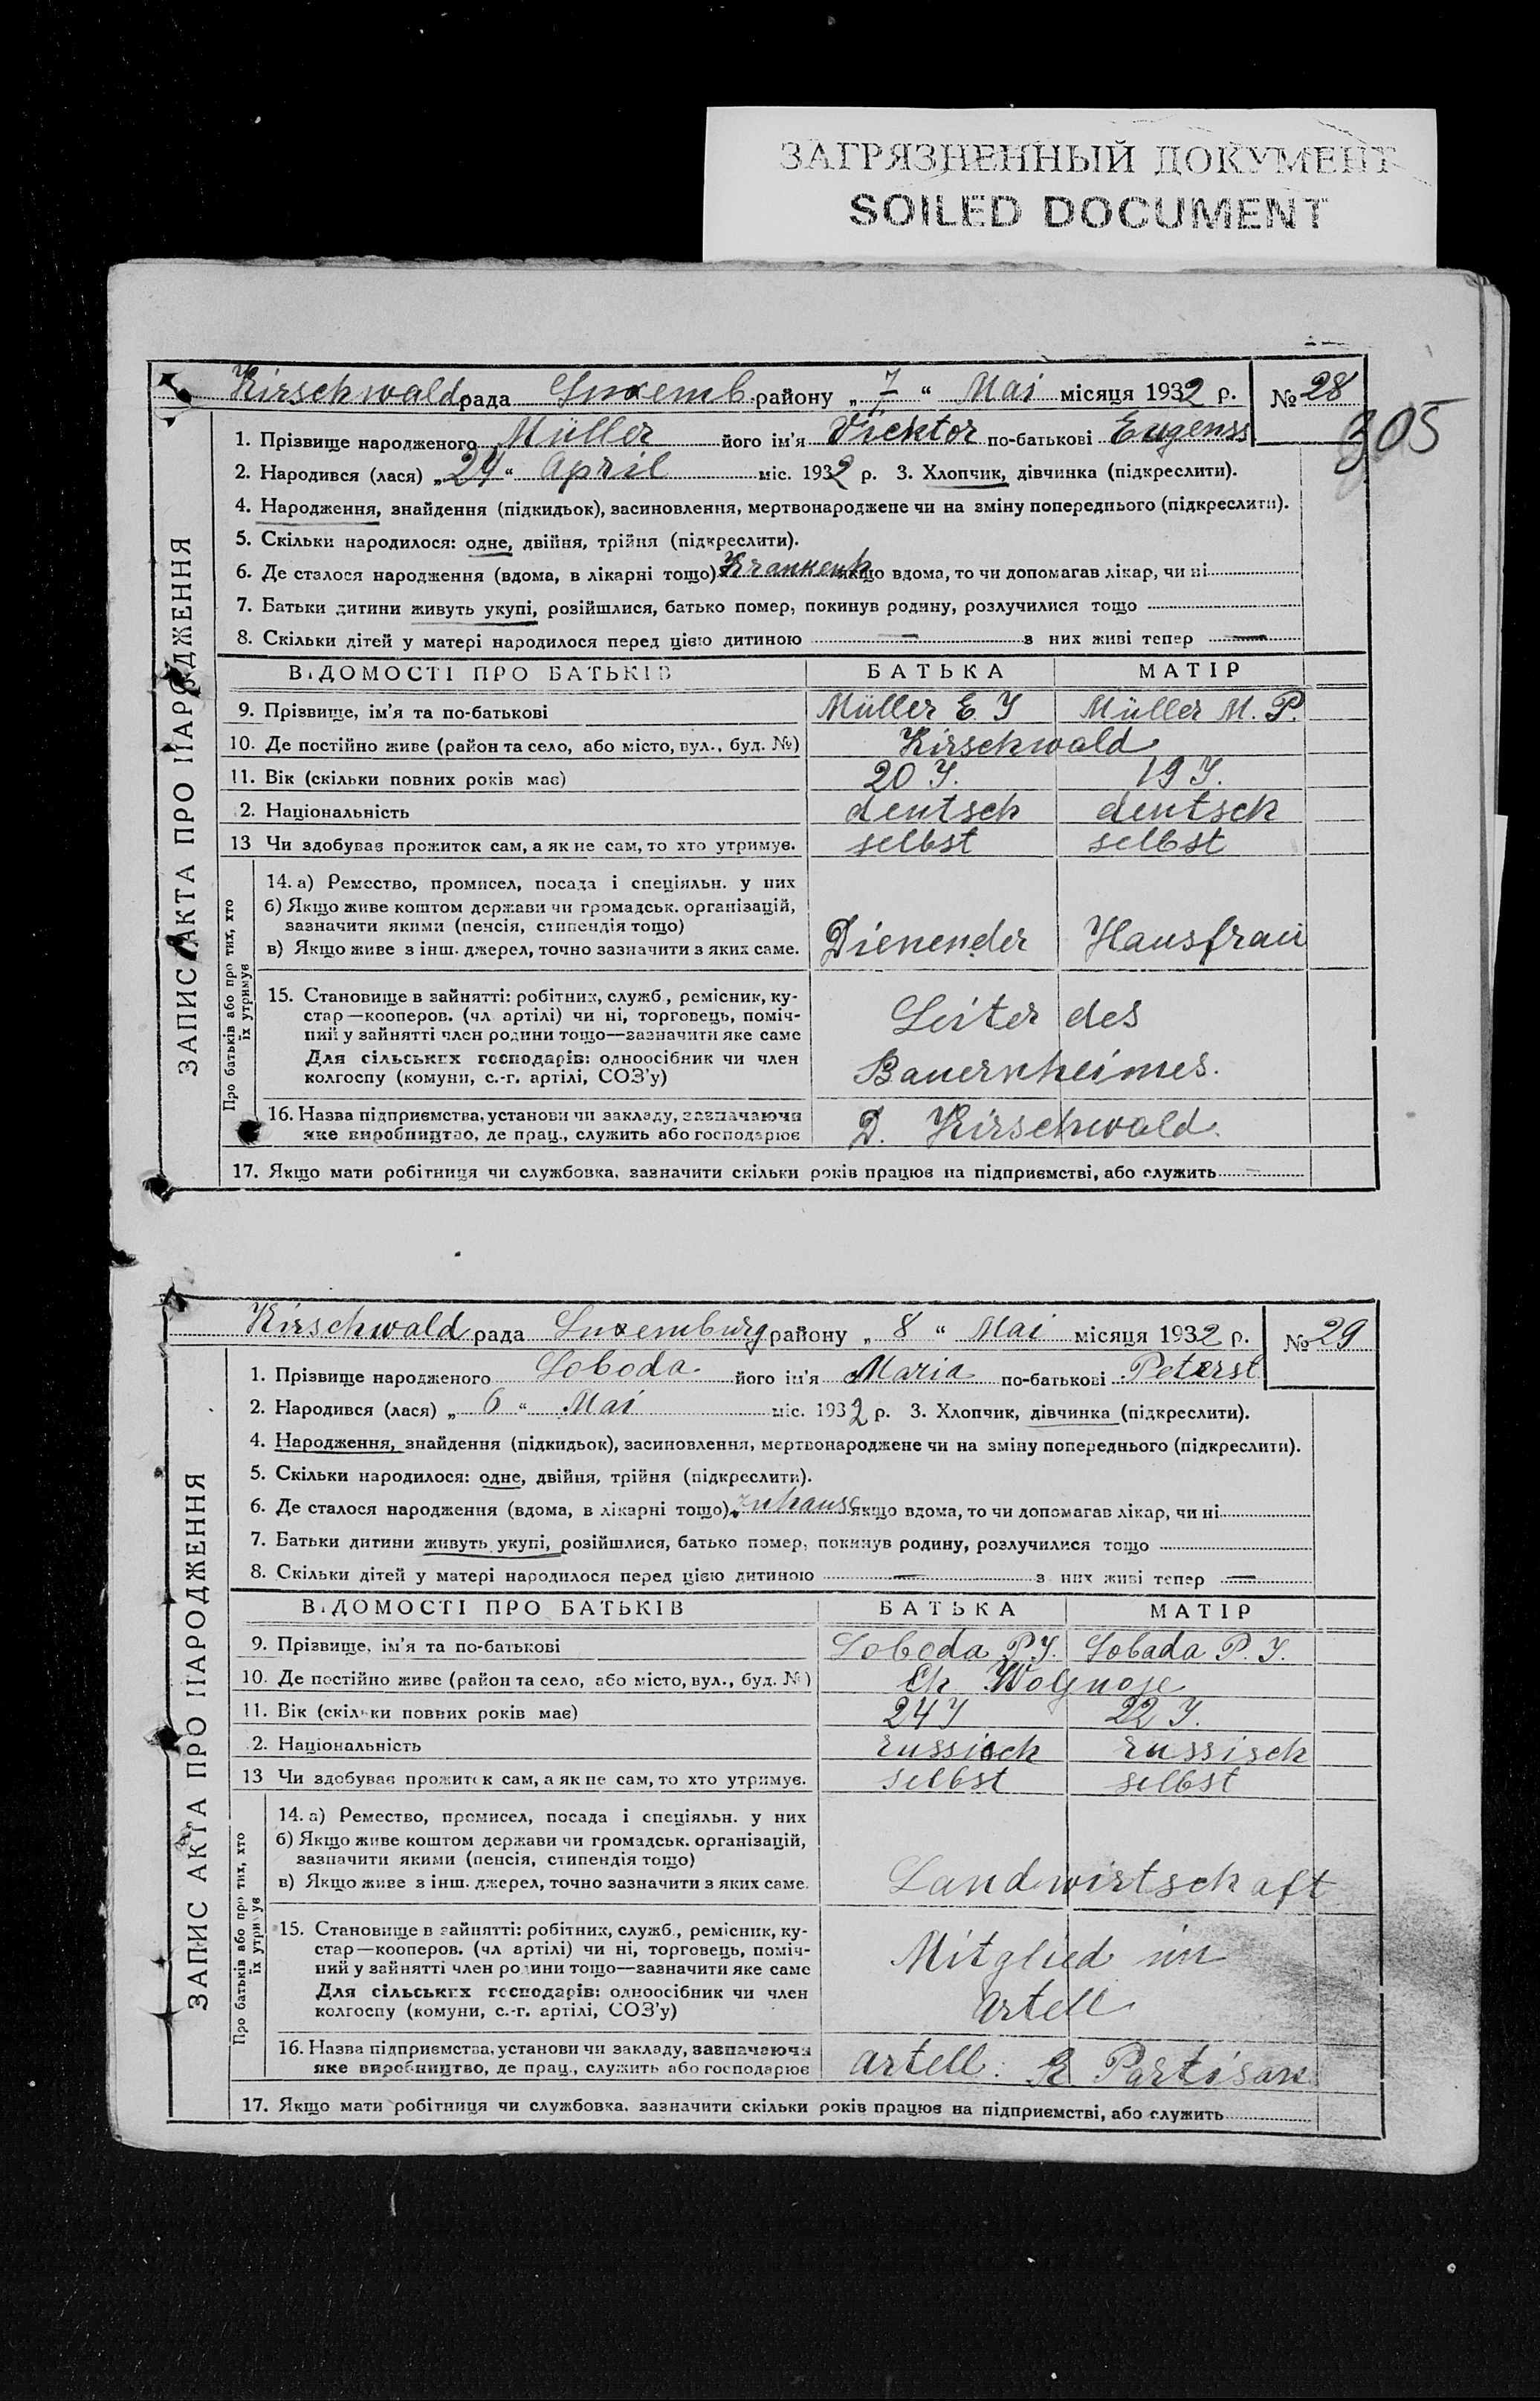 ЗАГРЯЗНЕННЫЙ ДОКУМЕНТ
SOILED DOCUMENT
Kirschwald рада Luxemb. району „ 7 “ Mai місяця 1932 р. № 28
305
1. Прізвище народженого Müller його ім’я Vicktor по-батькові Eugenss
2. Народився (лася) „ 24 “ April міс. 1932 р. 3. Хлопчик, дівчинка (підкреслити).
4. Народження, знайдення (підкидьок), засиновлення, мертвонароджене чи на зміну попереднього (підкреслити).
5. Скільки народилося: одне, двійня, трійня (підкреслити).
6. Де сталося народження (вдома, в лікарні тощо) Krankenh якщо вдома, то чи допомагав лікар, чи ні
7. Батьки дитини живуть укупі, розійшлися, батько помер, покинув родину, розлучилися тощо
8. Скільки дітей у матері народилося перед цією дитиною — з них живі тепер —
ВІДОМОСТІ ПРО БАТЬКІВ БАТЬКА МАТІР
9. Прізвище, ім’я та по-батькові Müller E. J Müller M. P.
10. Де постійно живе (район та село, або місто, вул., буд. №) Kirschwald
11. Вік (скільки повних років має) 20 J. 19 J.
2. Національність deutsch deutsch
13 Чи здобуває прожиток сам, а як не сам, то хто утримує. selbst selbst
14. а) Ремество, промисел, посада і спеціяльн. у них
б) Якщо живе коштом держави чи громадськ. організацій,
зазначити якими (пенсія, стипендія тощо)
в) Якщо живе з інш. джерел, точно зазначити з яких саме. Dienender Hausfrau
15. Становище в зайнятті: робітник, служб., ремісник, ку-
стар—кооперов. (чл. артілі) чи ні, торговець, поміч-
ний у зайнятті член родини тощо—зазначити яке саме
Leiter des
Для сільських господарів: одноосібник чи член
колгоспу (комуни, с.-г. артілі, СОЗ’у)
Bauernheimes.
16. Назва підприємства, установи чи закладу, зазначаючи
яке виробництво, де прац., служить або господарює D. Kirschwald.
17. Якщо мати робітниця чи службовка, зазначити скільки років працює на підприємстві, або служить
ЗАПИС АКТА ПРО НАРОДЖЕННЯ
Про батьків або про тих, хто
їх утримує
Kirschwald рада Luxemburg району „ 8 “ Mai місяця 1932 р. № 29
1. Прізвище народженого Loboda його ім’я Maria по-батькові Peterst
2. Народився (лася) „ 6 “ Mai міс. 1932 р. 3. Хлопчик, дівчинка (підкреслити).
4. Народження, знайдення (підкидьок), засиновлення, мертвонароджене чи на зміну попереднього (підкреслити).
5. Скільки народилося: одне, двійня, трійня (підкреслити).
6. Де сталося народження (вдома, в лікарні тощо) zuhause якщо вдома, то чи допомагав лікар, чи ні
7. Батьки дитини живуть укупі, розійшлися, батько помер, покинув родину, розлучилися тощо
8. Скільки дітей у матері народилося перед цією дитиною — з них живі тепер —
ВІДОМОСТІ ПРО БАТЬКІВ БАТЬКА МАТІР
9. Прізвище, ім’я та по-батькові Loboda P. J. Lobada P. J.
10. Де постійно живе (район та село, або місто, вул., буд. №) Ch Wolgnoje
11. Вік (скільки повних років має) 24 J 22 J.
2. Національність russisch russisch
13 Чи здобуває прожиток сам, а як не сам, то хто утримує. selbst selbst
14. а) Ремество, промисел, посада і спеціяльн. у них
б) Якщо живе коштом держави чи громадськ. організацій,
зазначити якими (пенсія, стипендія тощо)
в) Якщо живе з інш. джерел, точно зазначити з яких саме. Landwirtschaft
15. Становище в зайнятті: робітник, служб., ремісник, ку-
стар—кооперов. (чл. артілі) чи ні, торговець, поміч-
ний у зайнятті член родини тощо—зазначити яке саме
Mitglied im
Для сільських господарів: одноосібник чи член
колгоспу (комуни, с.-г. артілі, СОЗ’у)
Artell
16. Назва підприємства, установи чи закладу, зазначаючи
яке виробництво, де прац., служить або господарює Artell: R. Partisan
17. Якщо мати робітниця чи службовка, зазначити скільки років працює на підприємстві, або служить
ЗАПИС АКТА ПРО НАРОДЖЕННЯ
Про батьків або про тих, хто
їх утримує